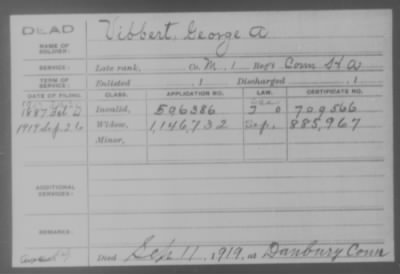 DEAD
Vibbert, George A
NAME OF SOLDIER:
SERVICE: Late rank, Co. M, 1 Reg't Conn H. A
TERM OF SERVICE: Enlisted , 1 Discharged , 1
DATE OF FILING. CLASS. APPLICATION NO. LAW. CERTIFICATE NO.
1887 Invalid, 596386 709566
1919 Sep. 26 Widow, 1,146,732 885,967
Minor,
ADDITIONAL SERVICES:
REMARKS:
Died Sep 11, 1919, at Danbury Conn